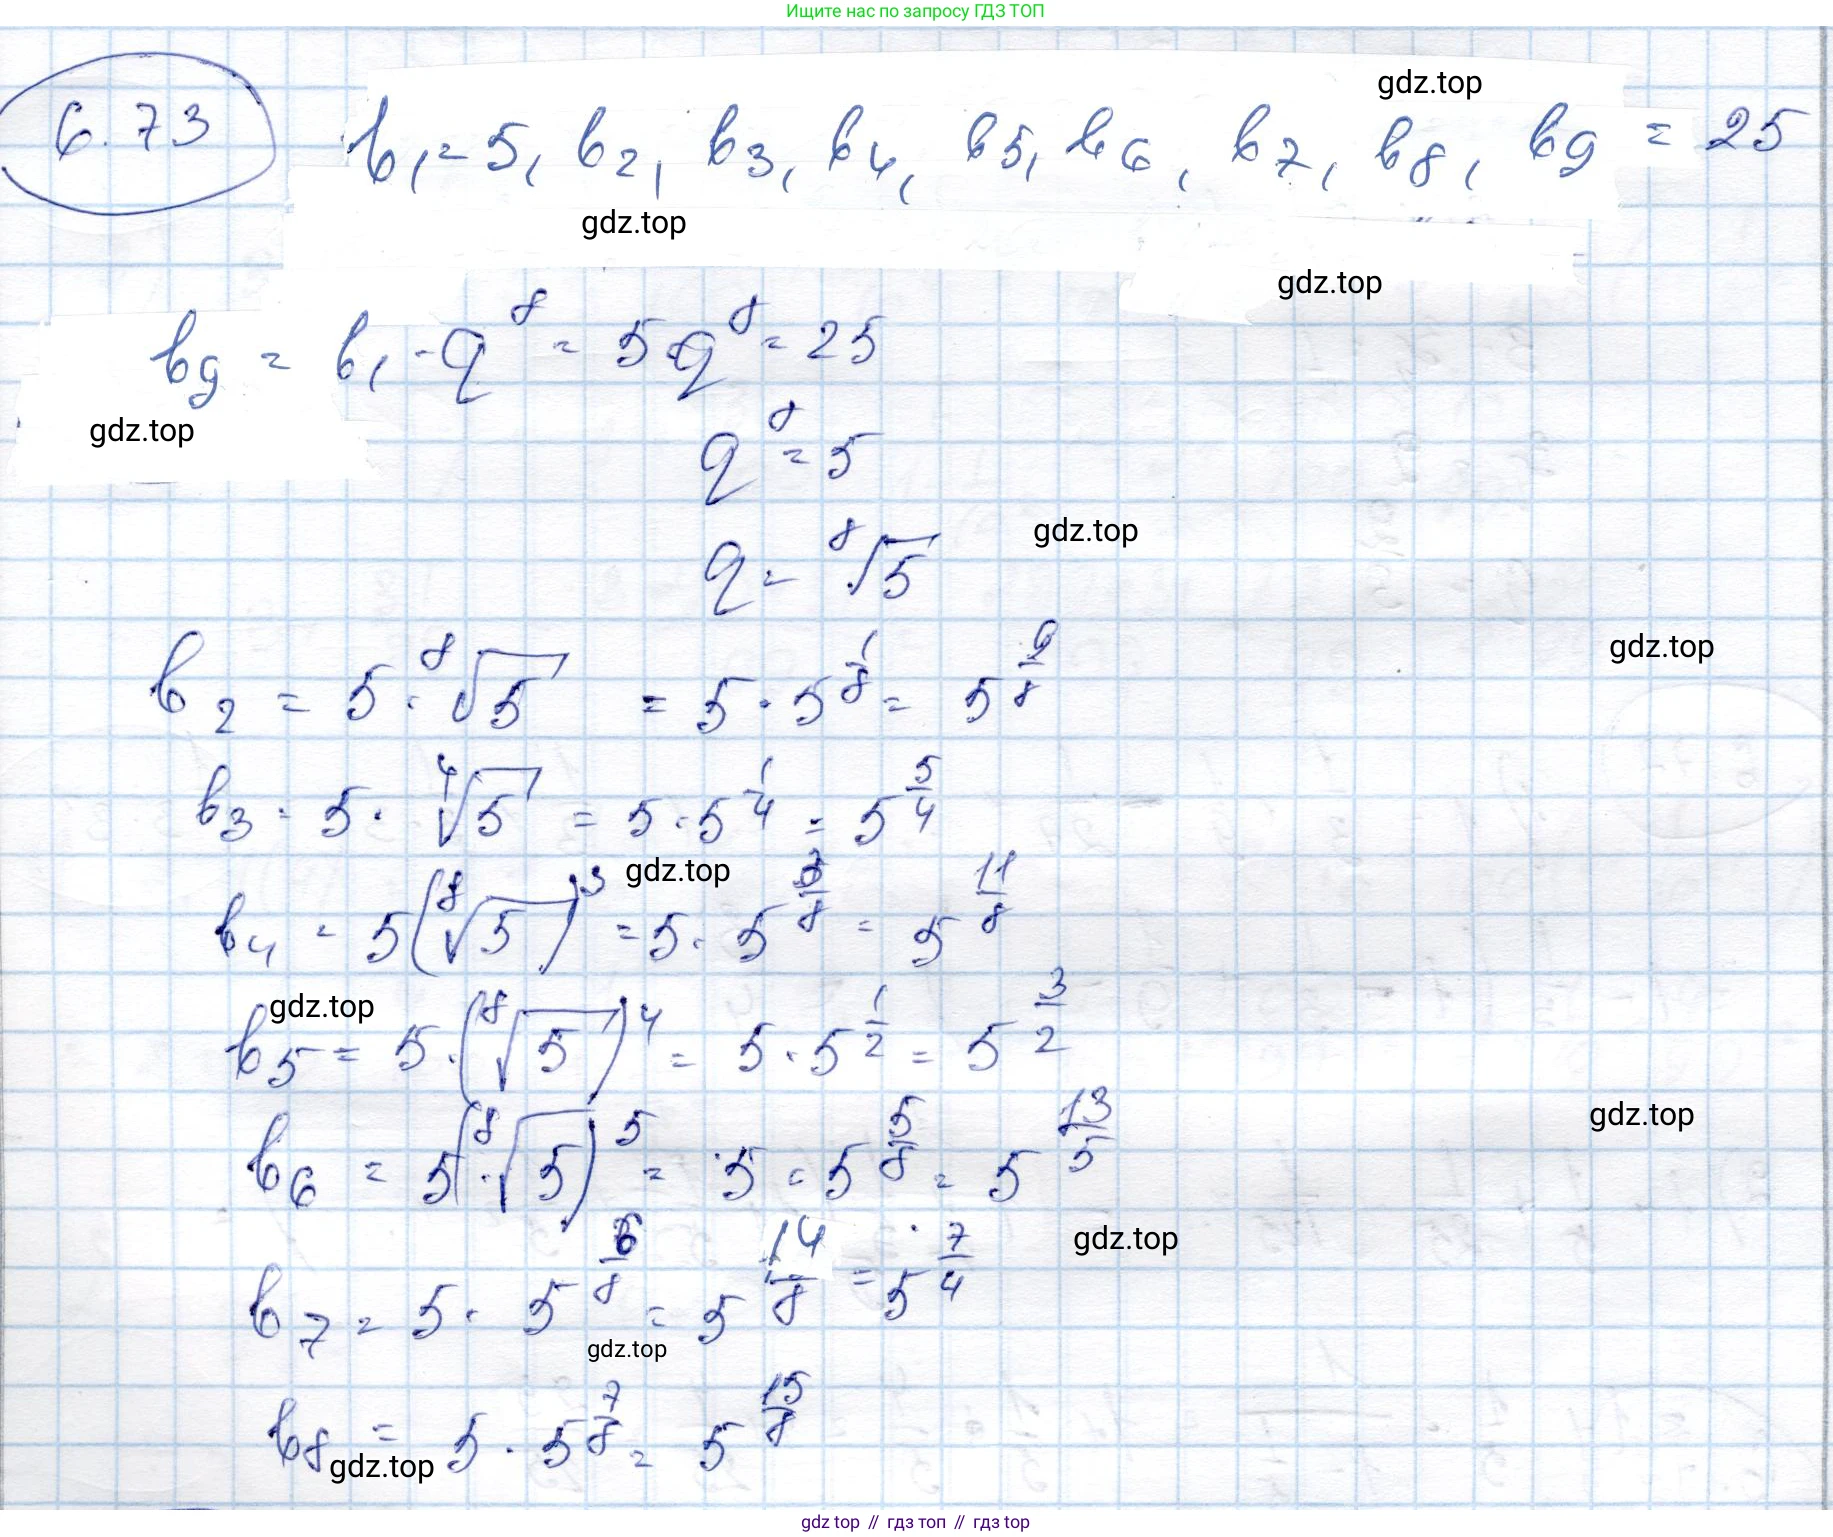 Ищите нас по запросу ГДЗ ТОП
gdz.top
6.73 b₁ = 5, b₂, b₃, b₄, b₅, b₆, b₇, b₈, b₉ = 25
gdz.top
gdz.top
b₉ = b₁ · q⁸ = 5 · q⁸ = 25
gdz.top
q⁸ = 5
gdz.top
q = ⁸√5
gdz.top
b₂ = 5 · ⁸√5 = 5 · 5^(1/8) = 5^(9/8)
b₃ = 5 · ⁴√5 = 5 · 5^(1/4) = 5^(5/4)
gdz.top
b₄ = 5(⁸√5)³ = 5 · 5^(3/8) = 5^(11/8)
gdz.top
b₅ = 5 · (⁸√5)⁴ = 5 · 5^(1/2) = 5^(3/2)
gdz.top
b₆ = 5(⁸√5)⁵ = 5 · 5^(5/8) = 5^(13/5)
gdz.top
b₇ = 5 · 5^(6/8) = 5^(14/8) = 5^(7/4)
gdz.top
b₈ = 5 · 5^(7/8) = 5^(15/8)
gdz.top
gdz top // гдз топ // гдз top